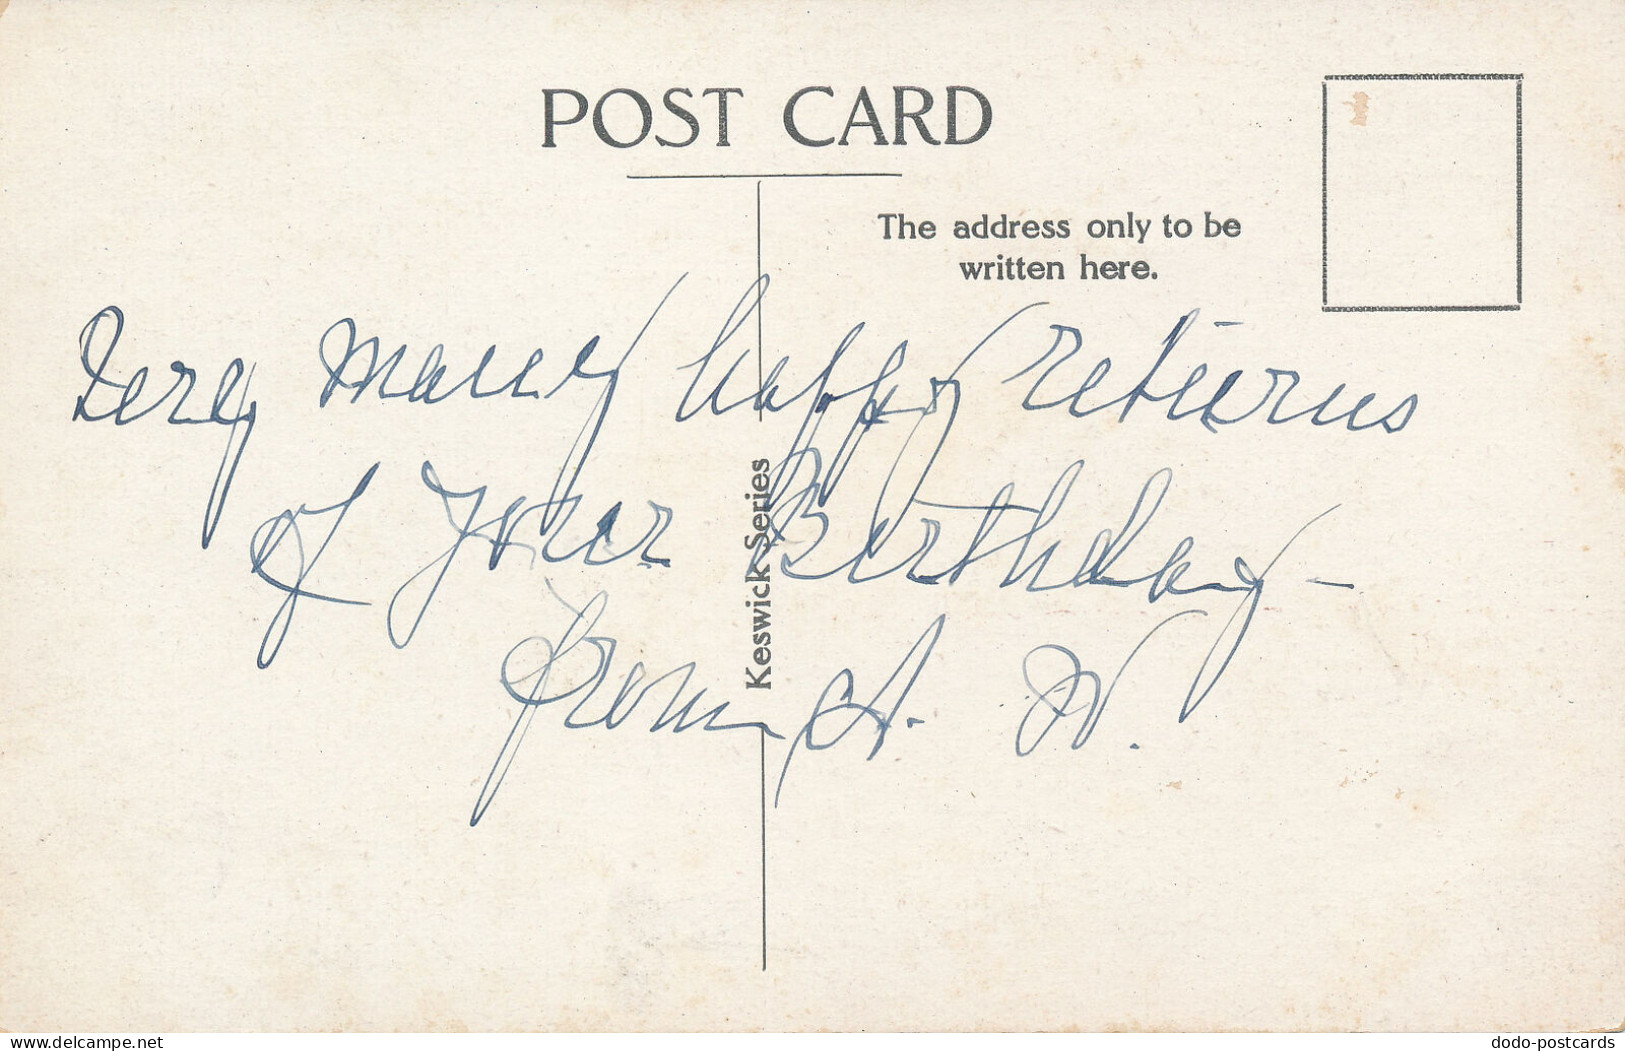 POST CARD
The address only to be
written here.
Very Many happy returns
of Your Birthday –
from A. W.
Keswick Series
delcampe.net
dodo-postcards